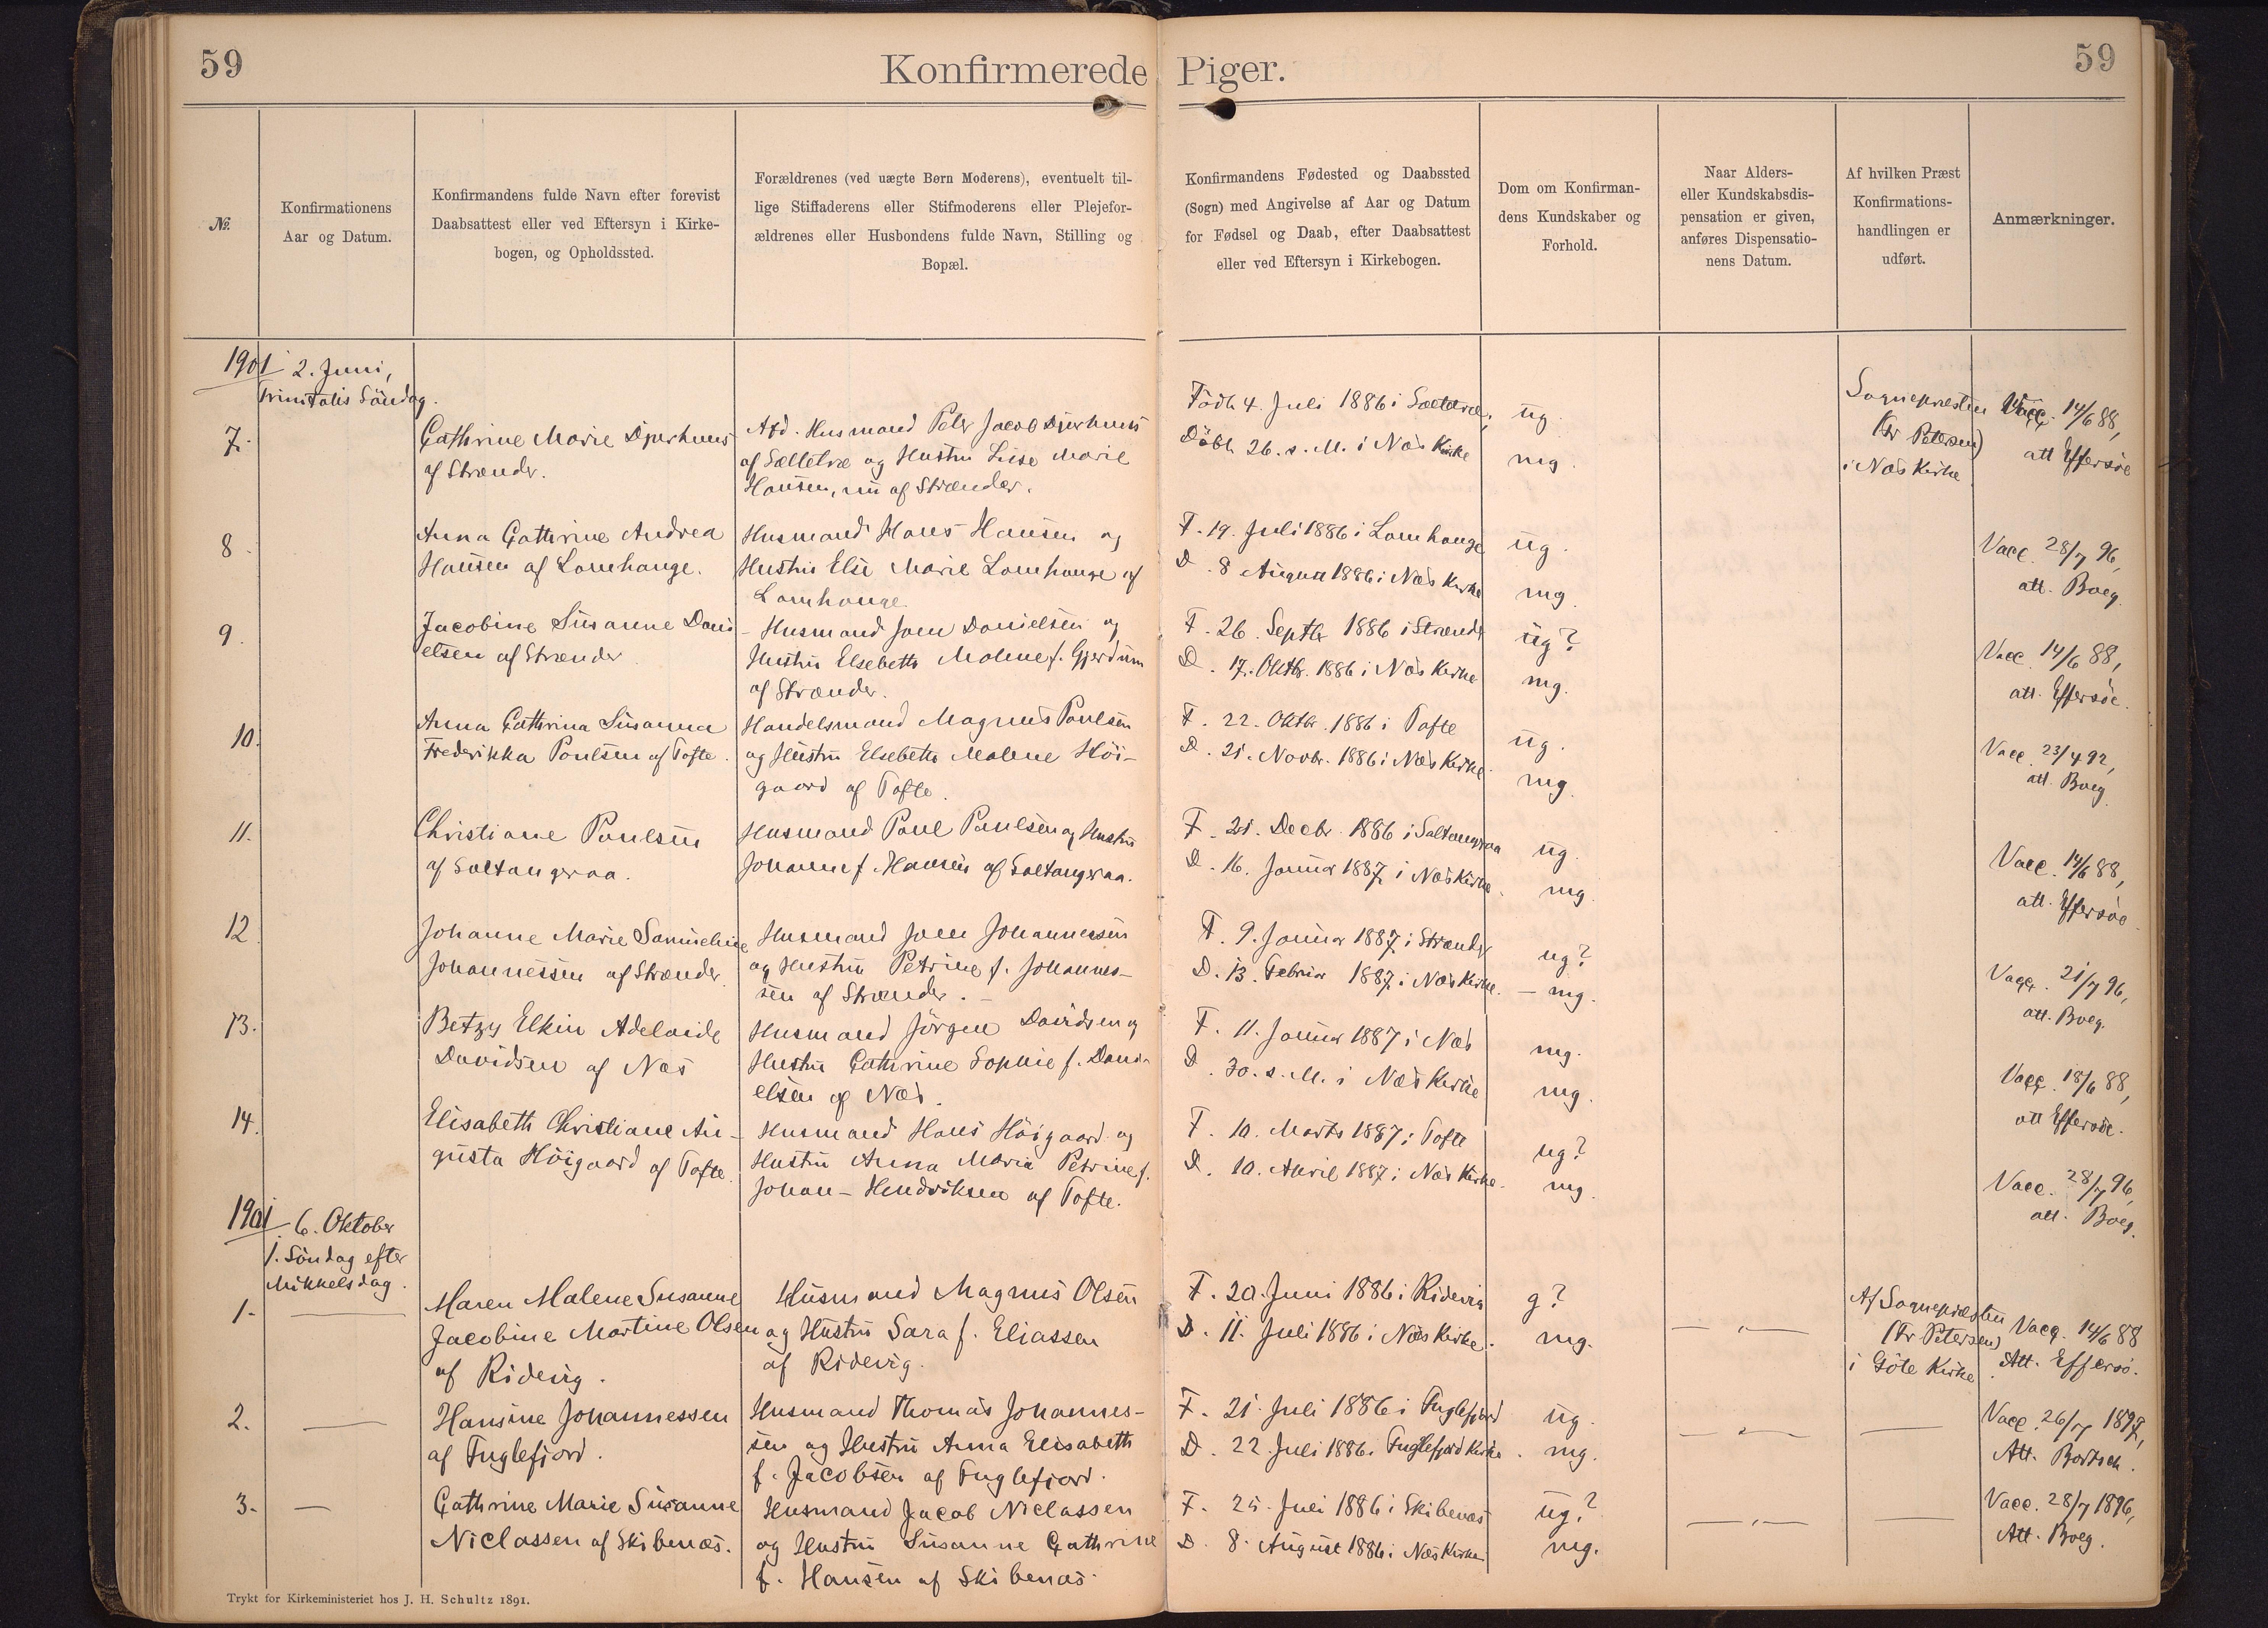 59
Konfirmerede Piger.
59
№.
Konfirmationens
Aar og Datum.
Konfirmandens fulde Navn efter forevist
Daabsattest eller ved Eftersyn i Kirke-
bogen, og Opholdssted.
Forældrenes (ved uægte Børn Moderens), eventuelt til-
lige Stiffaderens eller Stifmoderens eller Plejefor-
ældrenes eller Husbondens fulde Navn, Stilling og
Bopæl.
Konfirmandens Fødested og Daabssted
(Sogn) med Angivelse af Aar og Datum
for Fødsel og Daab, efter Daabsattest
eller ved Eftersyn i Kirkebogen.
Dom om Konfirman-
dens Kundskaber og
Forhold.
Naar Alders-
eller Kundskabsdis-
pensation er given,
anføres Dispensatio-
nens Datum.
Af hvilken Præst
Konfirmations-
handlingen er
udført.
Anmærkninger.
1901 2. Juni,
Trinitatis Söndag.
7.
Cathrine Marie Djurhuus
af Strænder.
Afd. Husmand Peter Jacob Djurhuus
af Selletræ og Hustru Lisse Marie
Hansen, nu af Strænder.
Födt 4. Juli 1886 i
Döbt 26. s. M. i Næs Kirke
ug.
mg.
Sognepræsten
(Fr Petersen)
i Næs Kirke
Vacc. 14/6 88,
att Effersöe
8.
Anna Cathrine Andrea
Hansen af Lamhauge.
Husmand Hans Hansen og
Hustru Else Marie Lamhauge af
Lamhauge.
F. 19. Juli 1886 i Lamhauge
D. 8 August 1886 i Næs Kirke
ug.
mg.
Vacc. 28/7 96,
att. Boeg.
9.
Jacobine Susanne Dani-
elsen af Strænder
Husmand Joen Danielsen og
Hustru Elsebeth Malene f. Gjerdum
af Strænder.
F. 26. Septbr 1886 i Strænder
D. 17. Oktbr. 1886 i Næs Kirke
ug?
mg.
Vacc. 14/6 88,
att. Effersöe.
10.
Anna Cathrina Susanna
Frederikka Poulsen af Tofte.
Handelsmand Magnus Poulsen
og Hustru Elsebeth Malene Höi-
gaard af Tofte.
F. 22. Oktbr. 1886 i Tofte
D. 21. Novbr. 1886 i Næs Kirke
ug.
mg.
Vacc. 23/4 92,
att. Boeg.
11.
Christiane Poulsen
af Saltangeraa.
Husmand Poul Poulsen og Hustru
Johanne f. Hansen af Saltangeraa.
F. 21. Decbr. 1886 i Saltangeraa
D. 16. Januar 1887 i Næs Kirke.
ug.
mg.
Vacc. 14/6 88,
att. Effersöe
12.
Johanne Marie Samueline
Johannessen af Strænder.
Husmand Joen Johannessen
og Hustru Petrine f. Johannes-
sen af Strænder.
F. 9. Januar 1887 i Strænder
D. 13. Februar 1887 i Næs Kirke.
ug?
mg.
Vacc. 21/7 96,
att. Boeg.
13.
Betzy Elkin Adelaide
Davidsen af Næs
Husmand Jörgen Davidsen og
Hustru Cathrine Sophie f. Dani-
elsen af Næs.
F. 11. Januar 1887 i Næs
D. 30. s. M. i Næs Kirke
mg.
mg.
Vacc. 18/6 88,
att Effersöe.
14.
Elisabeth Christiane Au-
gusta Höigaard af Tofte.
Husmand Hans Höigaard og
Hustru Anna Maria Petrine f.
Johan-Hendriksen af Tofte.
F. 10. Marts 1887 i Tofte
D. 10. April 1887 i Næs Kirke.
ug?
mg.
Vacc. 28/7 96,
att. Boeg.
1901 6. Oktober
1. Söndag efter
Mikkelsdag.
1.
Maren Malene Susanne
Jacobine Martine Olsen
af Ridevig.
Husmand Magnus Olsen
og Hustru Sara f. Eliassen
af Ridevig.
F. 20. Juni 1886 i Ridevig
D. 11. Juli 1886 i Næs Kirke.
g?
mg.
Af Sognepræsten
(Fr Petersen)
i Göte Kirke
Vacc. 14/6 88
Att. Effersö.
2.
Hansine Johannessen
af Fuglefjord.
Husmand Thomas Johannes-
sen og Hustru Anna Elisabeth
f. Jacobsen af Fuglefjord.
F. 21. Juli 1886 i Fuglefjord
D. 22. Juli 1886 i Fuglefjord Kirke.
ug.
mg.
Vacc. 26/7 1897,
Att.
3.
Cathrine Marie Susanne
Niclassen af Skibenæs.
Husmand Jacob Niclassen
og Hustru Susanne Cathrine
f. Hansen af Skibenæs.
F. 25. Juli 1886 i Skibenæs
D. 8. August 1886 i Næs Kirke
ug?
mg.
Vacc. 28/7 1896,
Att. Boeg.
Trykt for Kirkeministeriet hos J. H. Schultz 1891.